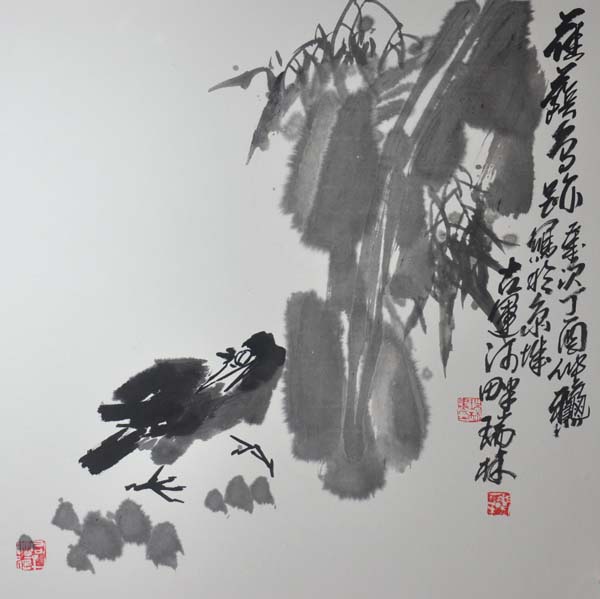 蕉蔭鳥跡
歲次丁酉仲龝
於京城
古運河畔瑞林